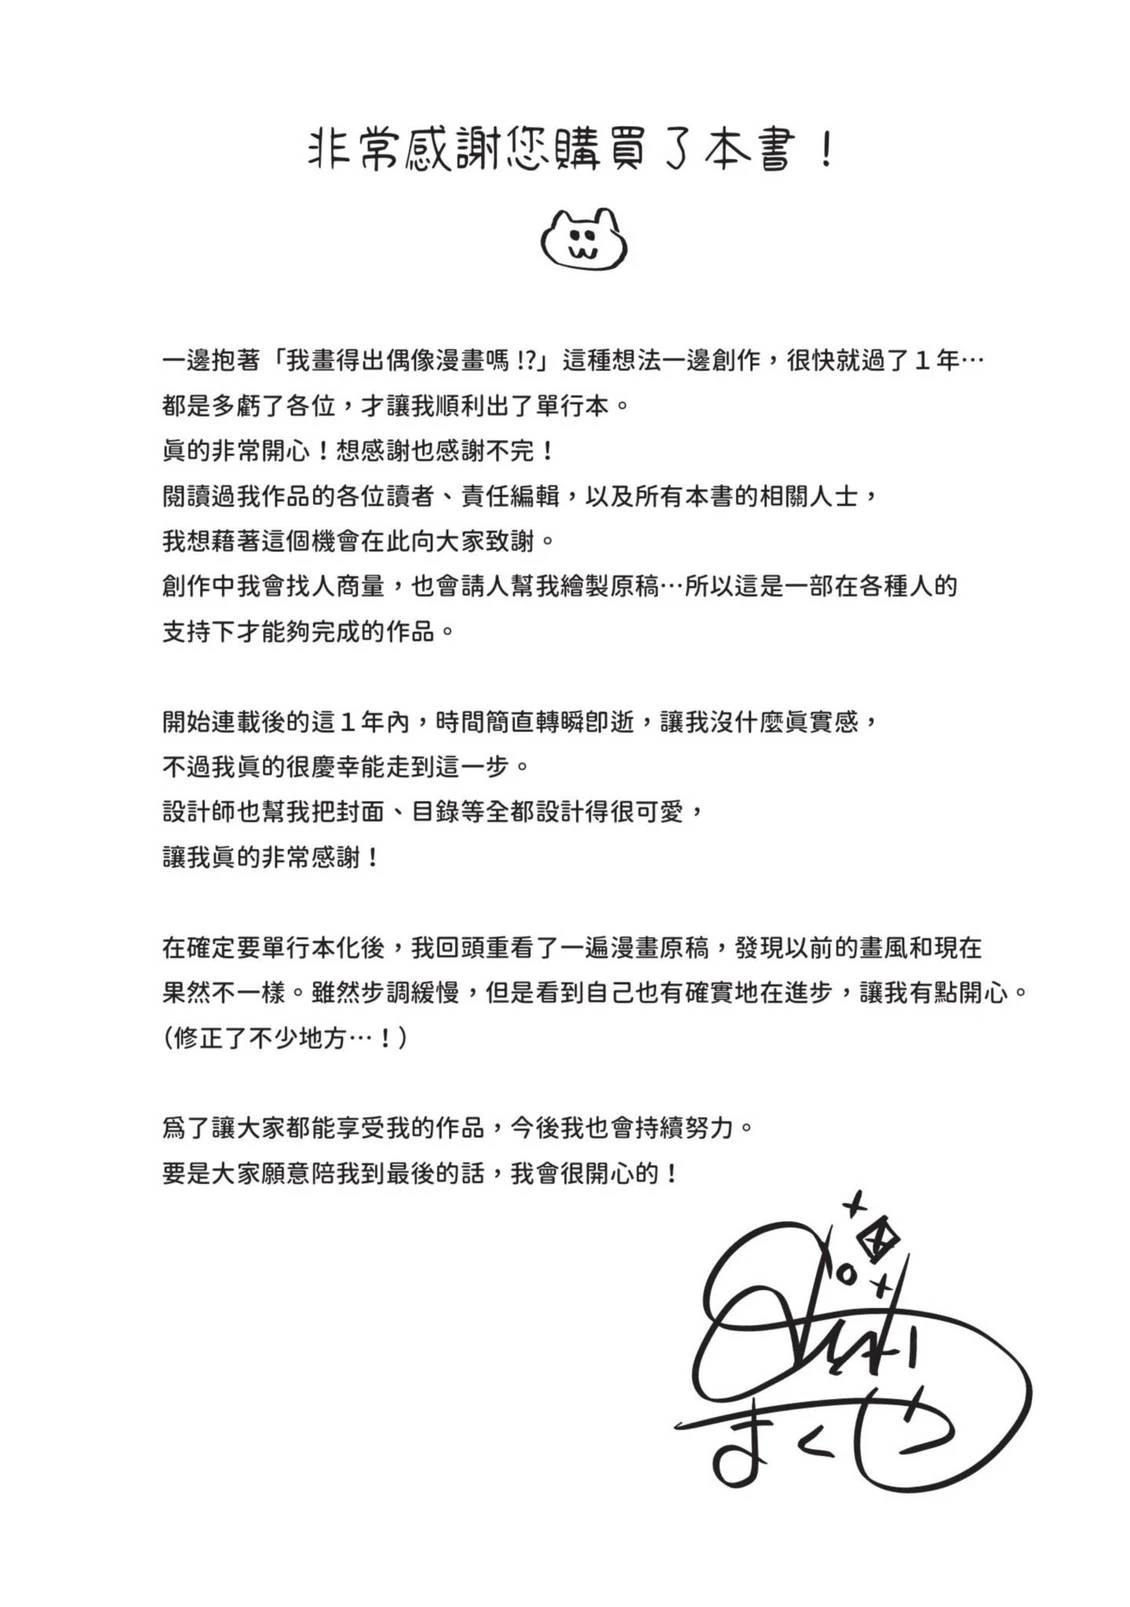 非常感謝您購買了本書！
一邊抱著「我畫得出偶像漫畫嗎!?」這種想法一邊創作，很快就過了1年…
都是多虧了各位，才讓我順利出了單行本。
眞的非常開心！想感謝也感謝不完！
閱讀過我作品的各位讀者、責任編輯，以及所有本書的相關人士，
我想藉著這個機會在此向大家致謝。
創作中我會找人商量，也會請人幫我繪製原稿…所以這是一部在各種人的
支持下才能夠完成的作品。
開始連載後的這1年內，時間簡直轉瞬卽逝，讓我沒什麼眞實感，
不過我眞的很慶幸能走到這一步。
設計師也幫我把封面、目錄等全都設計得很可愛，
讓我眞的非常感謝！
在確定要單行本化後，我回頭重看了一遍漫畫原稿，發現以前的畫風和現在
果然不一樣。雖然步調緩慢，但是看到自己也有確實地在進步，讓我有點開心。
（修正了不少地方…！）
爲了讓大家都能享受我的作品，今後我也會持續努力。
要是大家願意陪我到最後的話，我會很開心的！
まくや